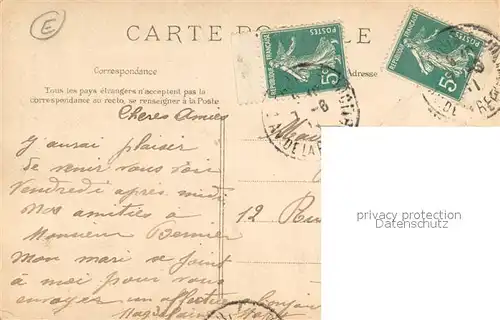 E
CARTE PO LE
Correspondance
Adresse
Tous les pays étrangers n'acceptent pas la
correspondance au recto, se renseigner à la Poste
REPUBLIQUE FRANÇAISE
POSTES
5c
REPUBLIQUE FRANÇAISE
POSTES
5c
Cheres Amies
J'aurai plaisir
de venir vous voir
Vendredi après midi
Nos amitiés à
Monsieur Bernier
Mon mari se joint
à moi pour vous
envoyer un affectueux bonjour
12 Rue
privacy protection
www.ansichtskartenversand.com